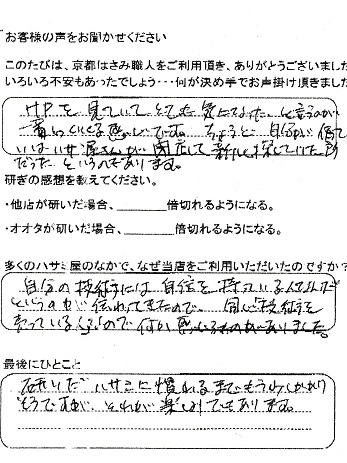 お客様の声をお聞かせください
このたびは、京都はさみ職人をご利用頂き、ありがとうございました
いろいろ不安もあったでしょう・・・何が決め手でお声掛け頂きました
HPを見ていてとても気になったと言うのが
一番しっくりくる感じです。ちょうど自分が信
いたハサミ屋さんが閉店して新しく探していた所
だったというのもあります。
研ぎの感想を教えてください。
・他店が研いだ場合、______倍切れるようになる。
・オオタが研いだ場合、______倍切れるようになる。
多くのハサミ屋のなかで、なぜ当店をご利用いただいたのですか？
自分の技術には自信を持っている人なんだ
というのが伝わってきたので。同じ技術を
売っている人間なので何か感じるものがありました。
最後にひとこと
研いだハサミに慣れるまでもう少しかかり
そうですが、それが楽しみでもあります。